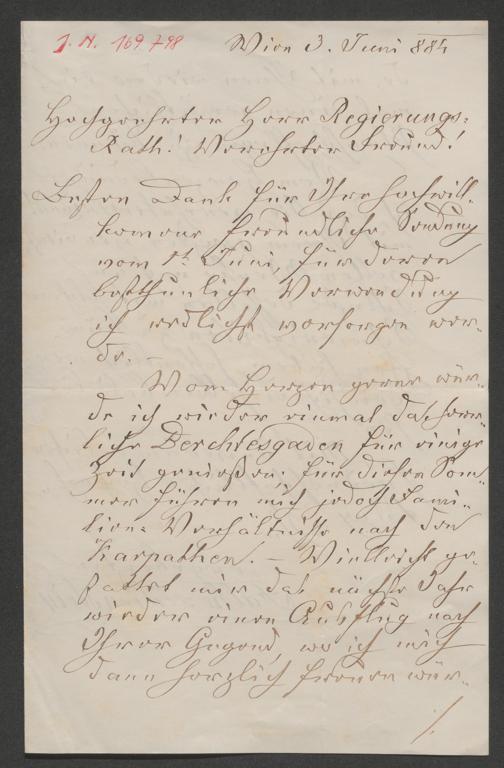 J. N. 169798
Wien 3. Juni 884
Hochgeehrter Herr Regierungs-
Rath! Verehrter Freund!
Besten Dank für Ihre hochwill-
komene freundliche Sendung
vom 1t Juni, für deren
bestthunliche Verwendung
ich redlichst versorgen wer-
de. -
Vom Herzen gerne wür-
de ich wieder einmal das herr-
liche Berchtesgaden für einige
Zeit genießen; für diesen Som-
mer führen mich jedoch Fami-
lien-Verhältnisse nach den
Karpathen. - Vielleicht ge-
stattet mir das nächste Jahr
wieder einen Ausflug nach
Ihrer Gegend, wo ich mich
dann herzlich freuen wür-
./.